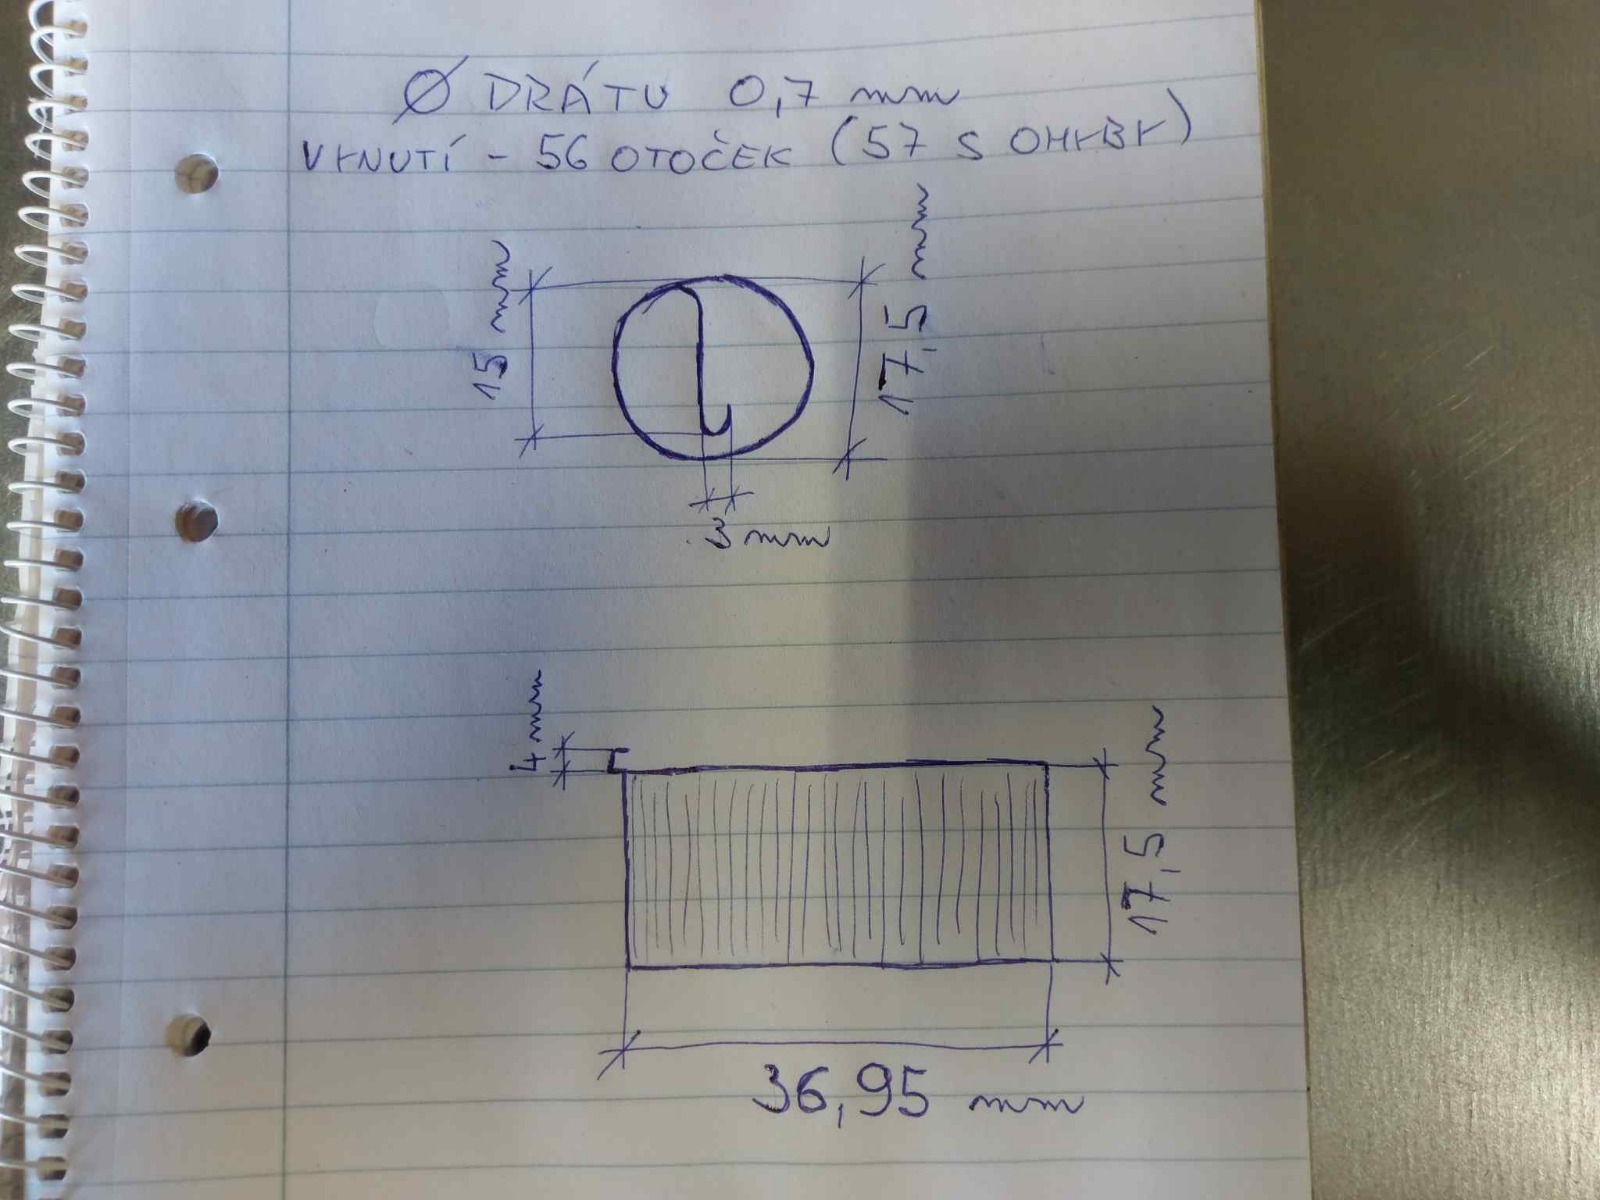 Ø DRÁTU 0,7 mm
VYNUTÍ - 56 OTOČEK (57 S OHYBY)
15 mm
17,5 mm
3 mm
4 mm
17,5 mm
36,95 mm